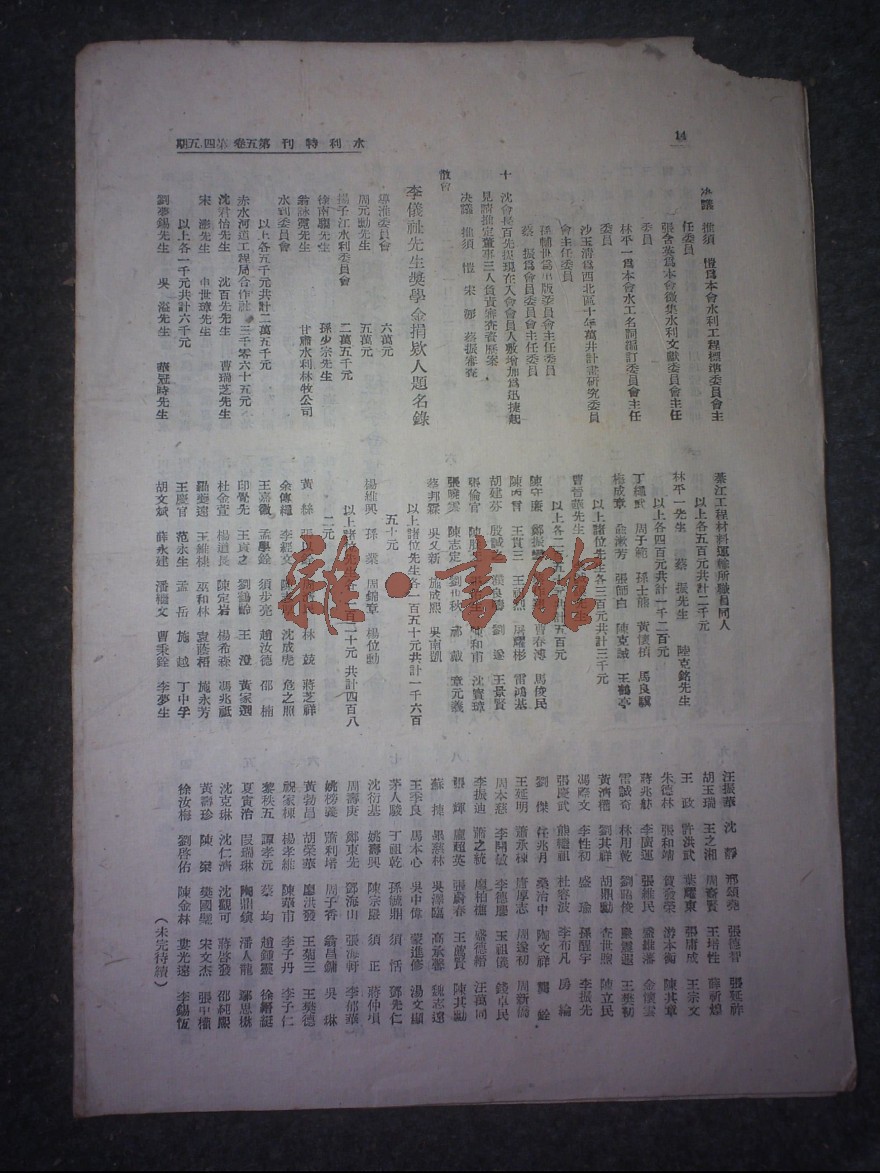 14
水利特刊 第五卷 第四,五期
決議 推須 愷爲本會水利工程標準委員會主
任委員
張含英爲本會徵集水利文獻委員會主任
委員
林平一爲本會水工名詞編訂委員會主任
委員
沙玉清爲西北區十年萬井計畫研究委員
會主任委員
孫輔世爲出版委員會主任委員
蔡 振爲會員委員會主任委員
十 沈會長百先提現在入會會員人數增加爲迅捷起
見請推定董事三人負責審查資歷案
決議 推須 愷 宋 蔡振審查
散會
李儀祉先生獎學金捐欵人題名錄
導淮委員會 六萬元
周元勳先生 五萬元
揚子江水利委員會 二萬五千元
徐南騶先生 孫少宗先生
翁詠霓先生 甘肅水利林牧公司
水利委員會
以上各五千元共計二萬五千元
赤水河道工程局合作社 三千零六十五元
沈君怡先生 沈百先先生 曹瑞芝先生
宋 先生 申世璋先生
以上各一千元共計六千元
劉夢錫先生 吳 溢先生 華冠時先生
綦江工程材料運輸所職員同人
以上各五百元共計二千元
林平一先生 蔡 振先生 陸克銘先生
以上各四百元共計一千二百元
丁繩武 周子範 孫士熊 黃懷楨 馬良騏
梅成章 俞漱芳 張師白 陳克誠 王鶴亭
以上諸位先生各三百元共計三千元
曹哲華先生
以上各二
陳守廉 鄭振 曹春溥 馬俊民
王實三 展耀彬 雷鴻基
胡建芬 殷誠 劉 遂 王景賢
張倫官 陳和甫 沈寶璋
張曉雲 陳志定 劉世秋 郝 敼 章元羲
蔡邦霖 吳又新 施成熙 吳南凱
以上諸位先生各一百五十元共計一千六百
五十元
楊維興 孫 樂 周錦章 楊位勳
以上諸位 百二十元共計四百八
二元
黃 絲 林 鼓 蔣芝祥
余傳櫂 李經文 沈成虎 危之照
王嘉徹 孟學銓 須步亮 趙汝德 邵 楠
印覺先 王寅之 劉鶴齡 王 澄 黃家選
杜金萱 楊道長 陳定岩 楊希森 馮兆祗
王維棣 巫和林 袁蔭梧 施永芳
王慶官 范永生 孟 岳 施 越 丁中孚
胡文斌 薛永建 潘繩文 曹秉銓 李夢生
汪振華 沈 靜 邢頌堯 張德智 張延祥
胡玉瑞 王之湘 周春賢 王培性 薛祈煐
王 政 許洪武 葉耀東 張庸成 王宗文
朱德林 張和靖 賀發榮 游本衡 陳其章
蔣兆舫 李廣運 張維民 盛維藩 金懷雲
雷誠奇 林用乾 劉路俊 王樊初
黃濟禮 劉其祥 胡鼎勳 查世煦 陳立民
馮際文 李性初 盛 瑜 孫醒宇 李振先
張慶武 熊繩祖 杜容波 李布凡 房 綸
劉 傑 任兆月 桑治中 陶文祥 龔 銓
王延明 蕭永棟 唐厚志 周遂初 周新僑
周本慈 李開敏 李德應 王祖儀 錢卓民
李振迪 蕭之統 廖柏樵 盛德縉 汪萬同
張 輝 盧超英 張蔚春 王徽賢 陳其勳
蘇 捷 畢慕林 吳澤臨 高承鑾 魏志遠
王季良 馬本心 吳中偉 蒙進修 湯文顯
茅人駿 丁祖乾 孫毓鼎 須 恬 鄧先仁
沈衍基 姚壽興 陳宗嚴 須 正 蔣仲塤
周壽庚 鄭東先 鄧海山 張海軒 李郁華
姚榜義 蕭利培 周子香 翁昌鏞 吳 琳
黃勃昌 胡榮華 廖洪發 王菊三 王樊德
祝家棟 楊孝維 陳華甫 李子丹 李子仁
黎秩五 譚孝沅 蔡 均 趙鍾靈 徐縉艇
夏寅治 段瑞琳 陶鼎鑲 潘人龍 鄒思楙
沈克琳 沈仁濟 沈觀可 蔣啓發 邵純熙
黃壽珍 陳 榮 樊國樂 宋文杰 張中權
徐汝梅 劉啓佑 陳金林 婁光遠 李錫恆
(未完待續)
雜·書館